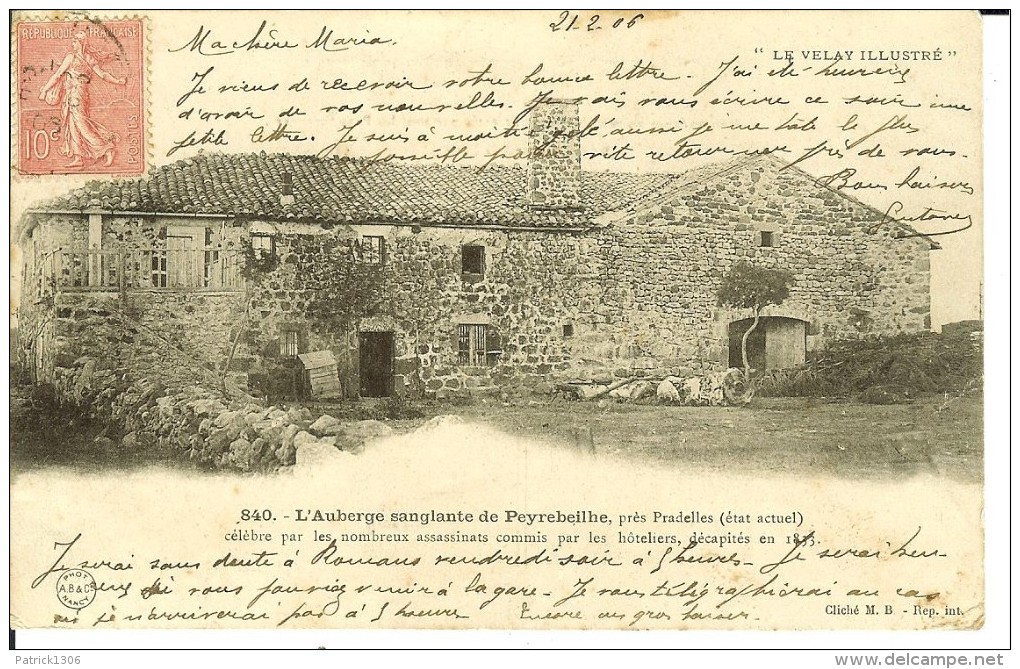 21-2-06
RÉPUBLIQUE FRANÇAISE
10c POSTES
" LE VELAY ILLUSTRÉ "
Ma chère Maria.
Je viens de recevoir votre bonne lettre. J'ai été heureux
d'avoir de vos nouvelles. Je vais vous écrire ce soir une
petite lettre. Je suis à moitié gelé aussi je me tate le plus
possible pour vite retourner près de vous.
Bons baisers
840. - L'Auberge sanglante de Peyrebeilhe, près Pradelles (état actuel)
célèbre par les nombreux assassinats commis par les hôteliers, décapités en 1833.
Je serai sans doute à Romans vendredi soir à 9 heures. Je serai heu-
reux si vous pouviez venir à la gare. Je vous télégraphierai au cas
où je n'arriverai pas à 9 heures. Encore un gros baiser.
PHOT
A.B & Cie
NANCY
Cliché M. B - Rep. int.
Patrick1306
www.delcampe.net